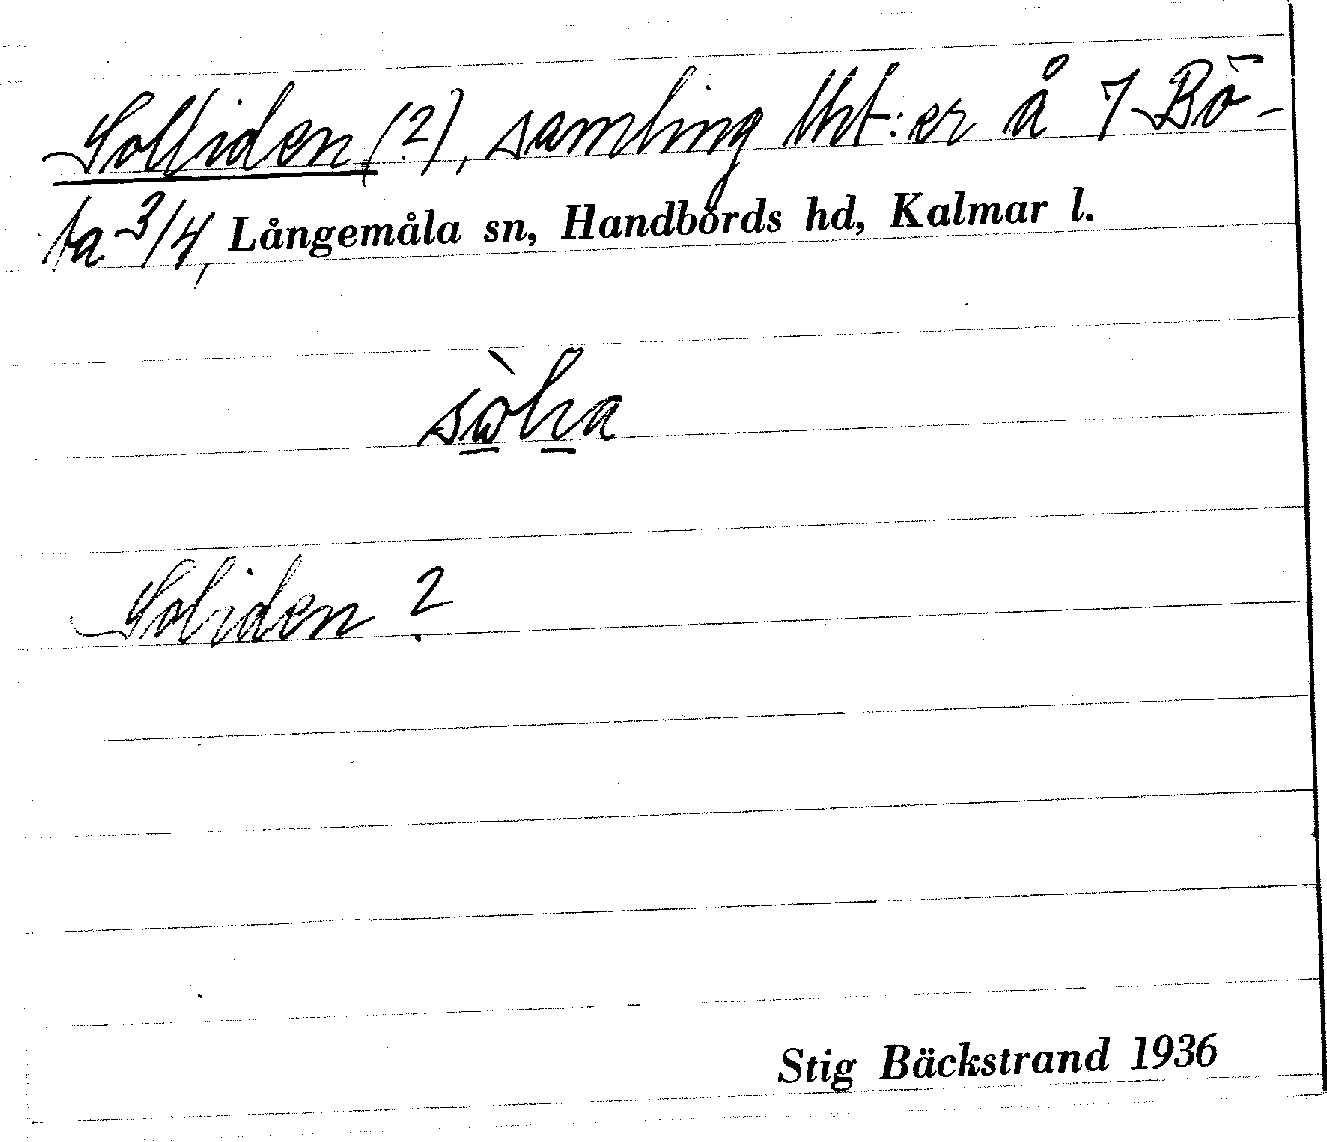 Solliden (?), samling lht:er å 7 Bö-
ta 3/4, Långemåla sn, Handbörds hd, Kalmar l.
Soliden ?
Stig Bäckstrand 1936